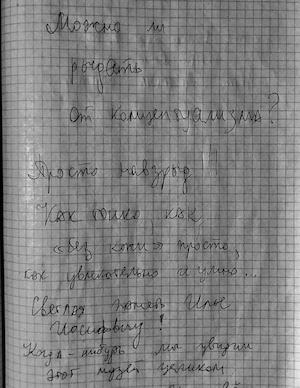 Можно ли
рыдать
от концептуализма?
Просто навзрыд!!
Как тонко, как
«без кожи» просто,
как увлекательно и умно...
Светлая память Илье
Иосифовичу!
Когда-нибудь мы увидим
этот музей целиком